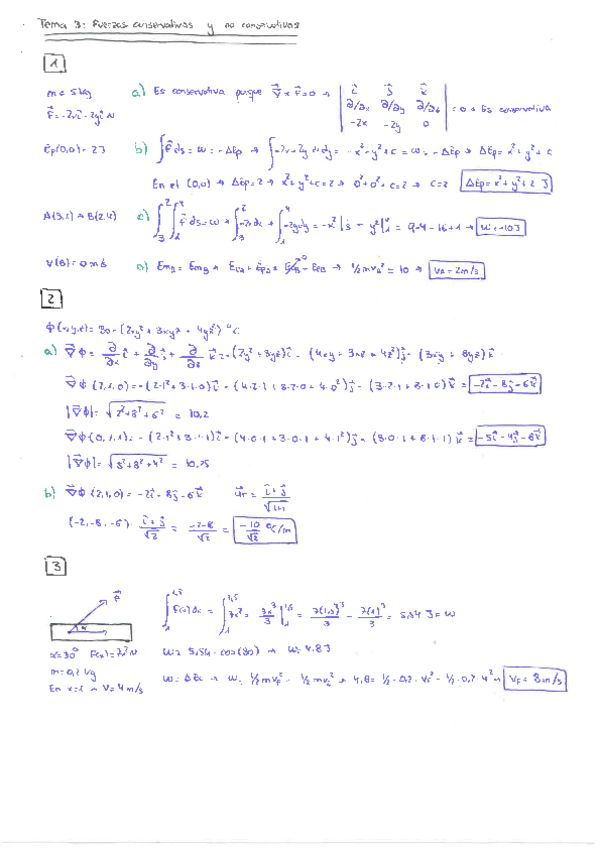 Tema 3: Fuerzas conservativas y no conservativas
1
m = 5 kg a) Es conservativa porque ∇ × F = 0 → | i j k |
F = -2xi - 2yj N | ∂/∂x ∂/∂y ∂/∂z | = 0 → Es conservativa
| -2x -2y 0 |
Ep(0,0) = 2J b) ∫ F ds = W = -ΔEp → ∫ -2x - 2y dx dy = -x² - y² + c = W = -ΔEp → ΔEp = x² + y² + c
En el (0,0) → ΔEp = 2 → x² + y² + c = 2 → 0² + 0² + c = 2 → c = 2 ΔEp = x² + y² + 2 J
A(3,1) → B(2,4) c) ∫₃² ∫₁⁴ F ds = W → ∫₃² -2x dx + ∫₁⁴ -2y dy = -x² |₃² - y² |₁⁴ = 9 - 4 - 16 + 1 → W = -10J
V(B) = 0 m/s d) EmA = EmB → EcA + EpA = EcB + EpB → ½ m vA² = 10 → vA = 2 m/s
2
ϕ(x,y,z) = 80 - (2xy² + 3xyz + 4yz²) °C
a) ∇ϕ = ∂/∂x i + ∂/∂y j + ∂/∂z k = -(2y² + 3yz)i - (4xy + 3xz + 4z²)j - (3xy + 8yz)k
∇ϕ (2,1,0) = -(2·1² + 3·1·0)i - (4·2·1 + 3·2·0 + 4·0²)j - (3·2·1 + 8·1·0)k = -2i - 8j - 6k
|∇ϕ| = √(2² + 8² + 6²) = 10,2
∇ϕ (0,1,1) = -(2·1² + 3·1·1)i - (4·0·1 + 3·0·1 + 4·1²)j - (3·0·1 + 8·1·1)k = -5i - 4j - 8k
|∇ϕ| = √(5² + 8² + 4²) = 10,25
b) ∇ϕ (2,1,0) = -2i - 8j - 6k ur = (i + j)/√(1+1)
(-2,-8,-6) · (i + j)/√2 = (-2-8)/√2 = -10/√2 °C/m
3
F
α
∫₁^1,5 F(x) dx = ∫₁^1,5 7x² = 7x³/3 |₁^1,5 = 7(1,5)³/3 - 7(1)³/3 = 5,54 J = W
α = 30° F(x) = 7x² N W = 5,54 · cos(30) → W = 4,8J
m = 0,2 kg
En x = 1 → V = 4 m/s W = ΔEc → W = ½ m vf² - ½ m vi² → 4,8 = ½ · 0,2 · vf² - ½ · 0,2 · 4² → vf = 8 m/s